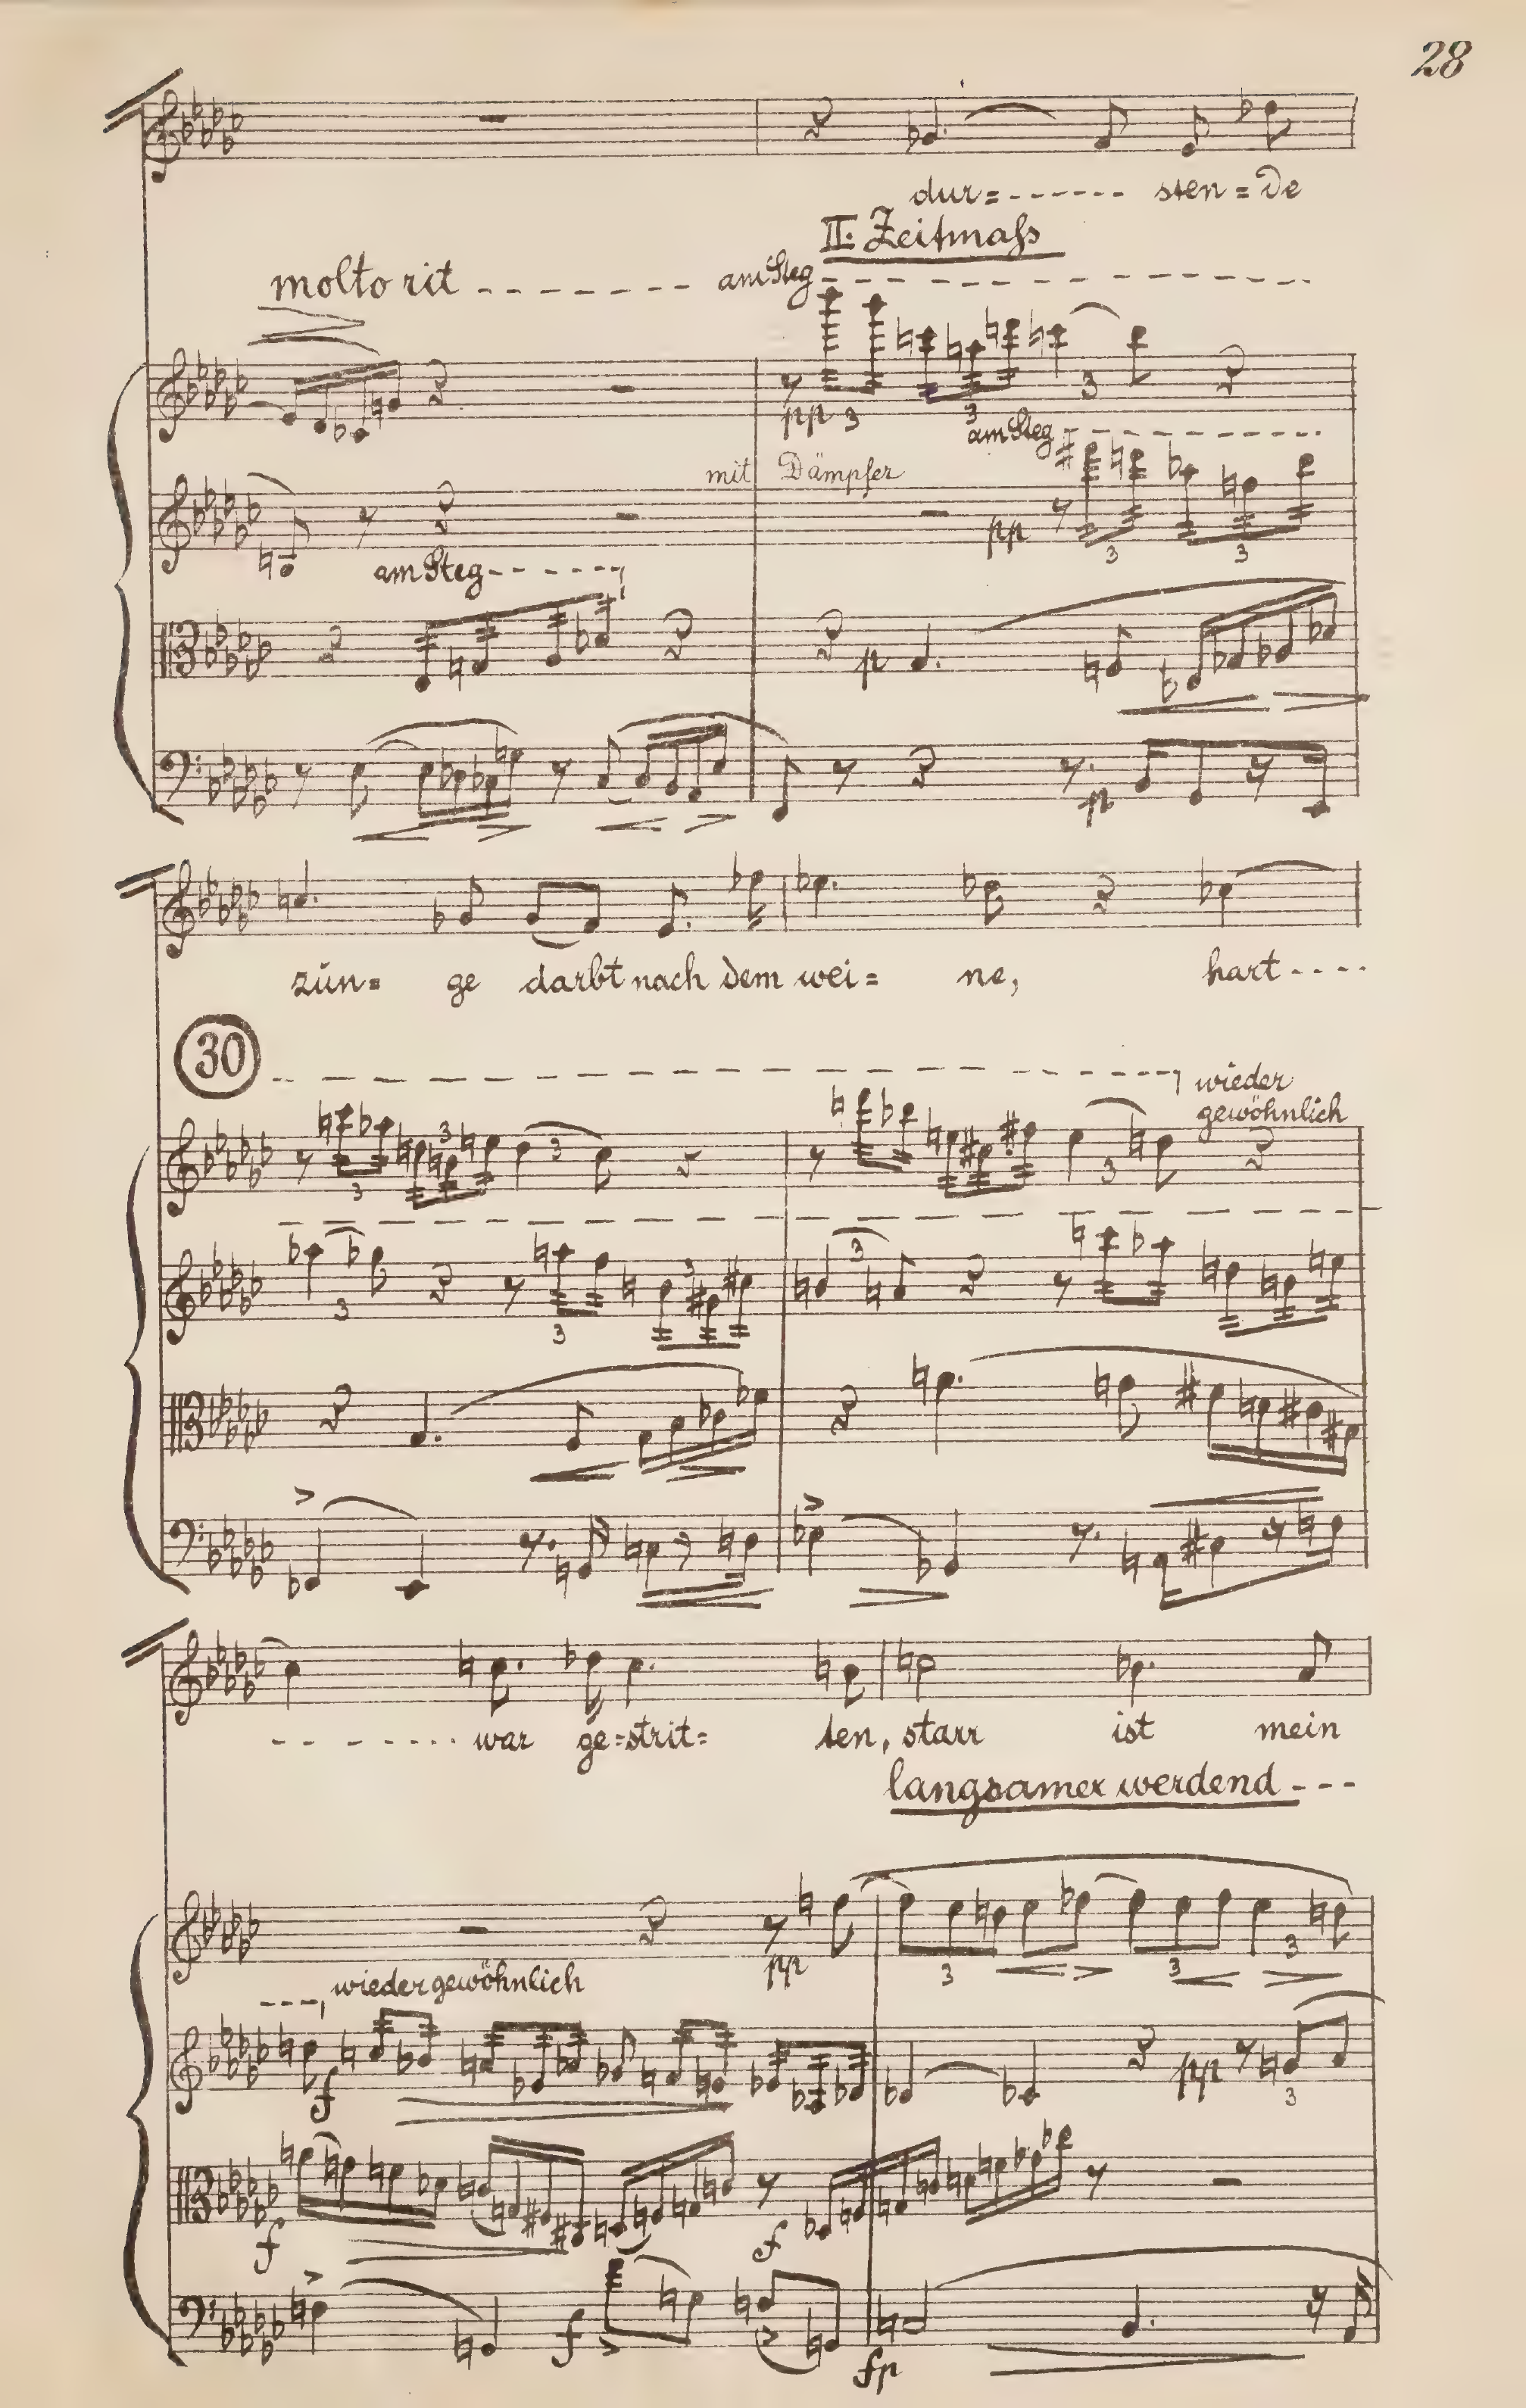 28
dur=------ sten=de
II. Zeitmaſs
molto rit -------- am Steg --------
pp 3 3 3
am Steg --------
mit Dämpfer
pp 3 3
am Steg------
p
p
zün= ge darbt nach dem wei= ne, hart----
30
wieder
gewöhnlich
3 3 3 3
3 3 3 3
------ war ge=strit= ten, starr ist mein
langsamer werdend---
pp 3 3 3
wieder gewöhnlich
f pp 3
f f
f fp